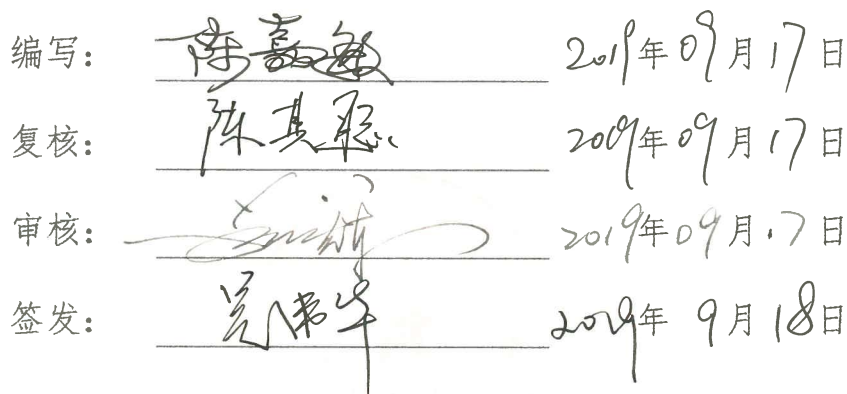 编写: 陈嘉敏 2019年09月17日
复核: 陈其聪 2019年09月17日
审核: 2019年09月17日
签发: 吴伟华 2019年9月18日